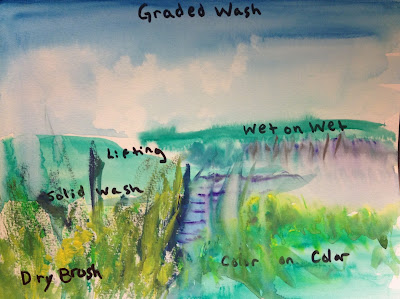 Graded Wash
Wet on Wet
Lifting
Solid Wash
Color on Color
Dry Brush